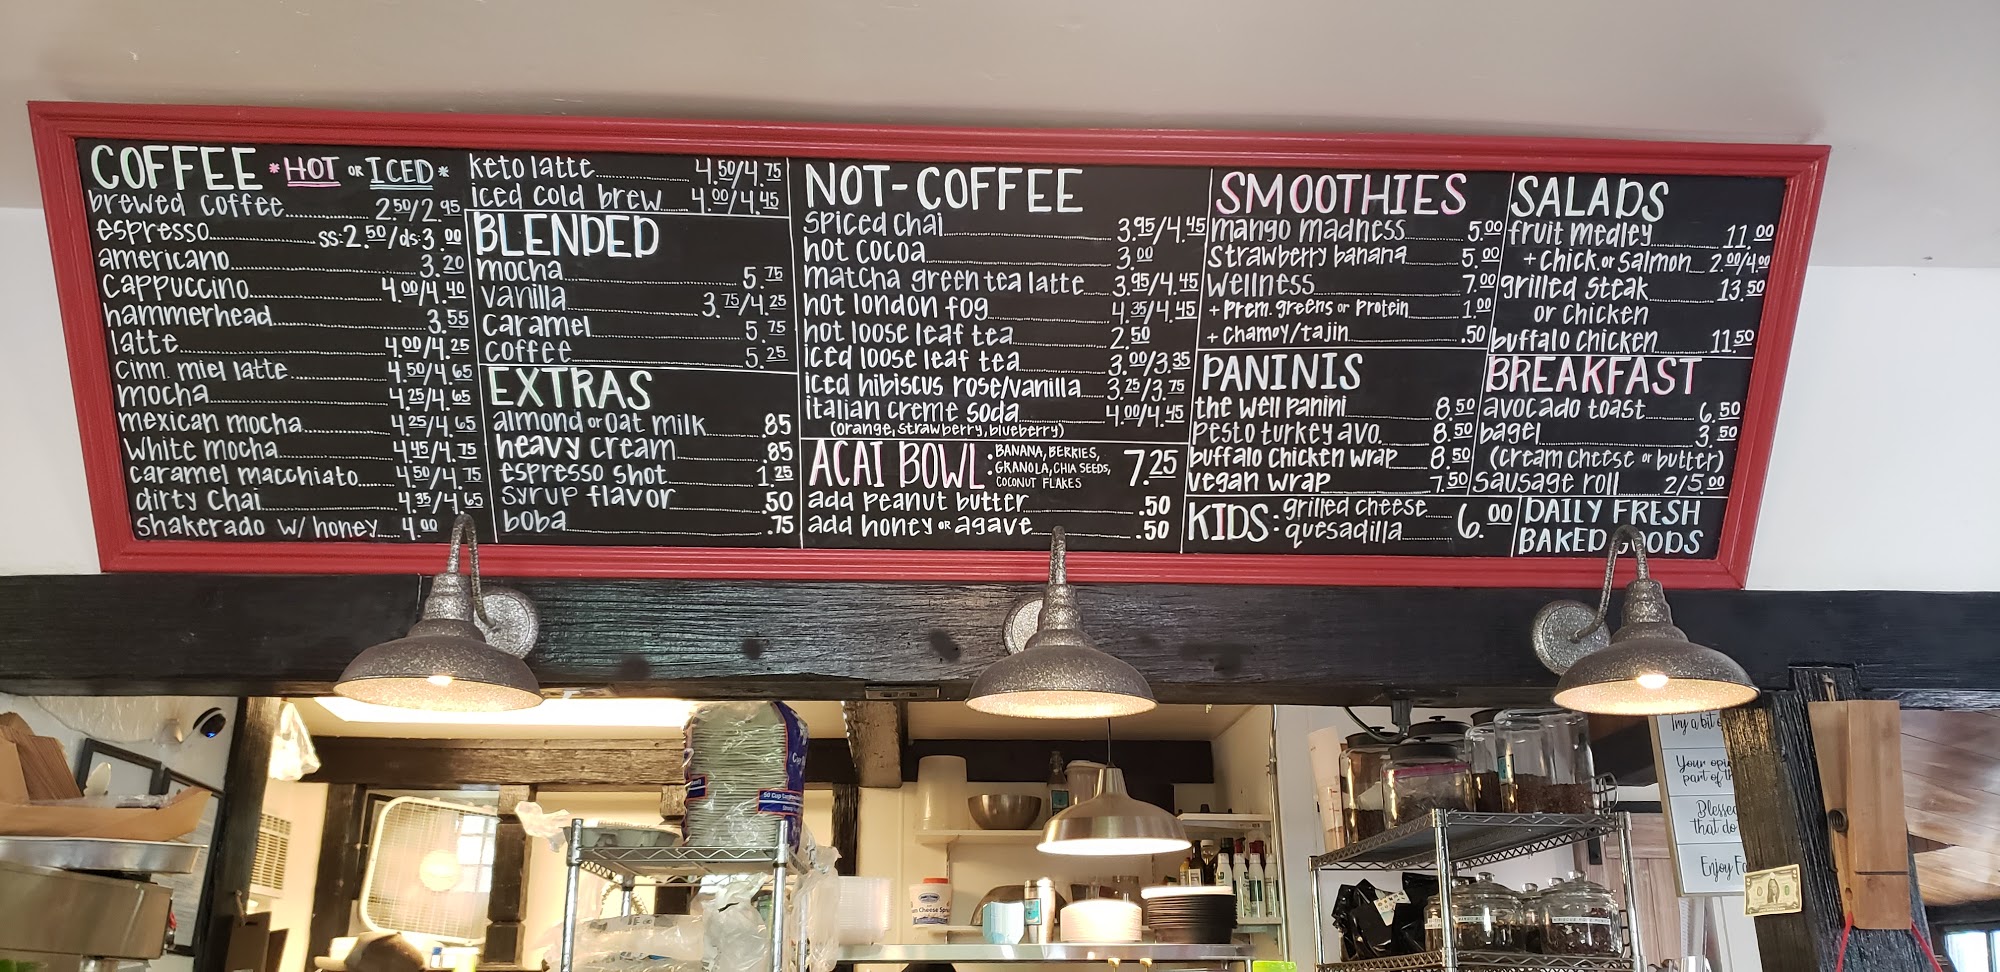 COFFEE *HOT OR ICED*
brewed coffee 2.50/2.95
espresso ss:2.50/ds:3.00
americano 3.20
cappuccino 4.00/4.40
hammerhead 3.55
latte 4.00/4.25
cinn. miel latte 4.50/4.65
mocha 4.25/4.65
mexican mocha 4.25/4.65
white mocha 4.45/4.75
caramel macchiato 4.50/4.75
dirty chai 4.35/4.65
shakerado w/ honey 4.00
keto latte 4.50/4.75
iced cold brew 4.00/4.45
BLENDED
mocha 5.75
vanilla 3.75/4.25
caramel 5.75
coffee 5.25
EXTRAS
almond or oat milk .85
heavy cream .85
espresso shot 1.25
syrup flavor .50
boba .75
NOT-COFFEE
spiced chai 3.95/4.45
hot cocoa 3.00
matcha green tea latte 3.95/4.45
hot london fog 4.35/4.45
hot loose leaf tea 2.50
iced loose leaf tea 3.00/3.35
iced hibiscus rose/vanilla 3.25/3.75
italian creme soda 4.00/4.45
(orange, strawberry, blueberry)
ACAI BOWL: BANANA, BERRIES, GRANOLA, CHIA SEEDS, COCONUT FLAKES 7.25
add peanut butter .50
add honey OR agave .50
SMOOTHIES
mango madness 5.00
strawberry banana 5.00
wellness 7.00
+ prem. greens or protein 1.00
+ chamoy/tajin .50
PANINIS
the well panini 8.50
pesto turkey avo. 8.50
buffalo chicken wrap 8.50
vegan wrap 7.50
KIDS: grilled cheese
quesadilla 6.00
SALADS
fruit medley 11.00
+ chick. or salmon 2.00/4.00
grilled steak 13.50
or chicken
buffalo chicken 11.50
BREAKFAST
avocado toast 6.50
bagel 3.50
(cream cheese or butter)
sausage roll 2/5.00
DAILY FRESH
BAKED GOODS
Try a bit
Your
part of
Blessed
that do
Enjoy
50